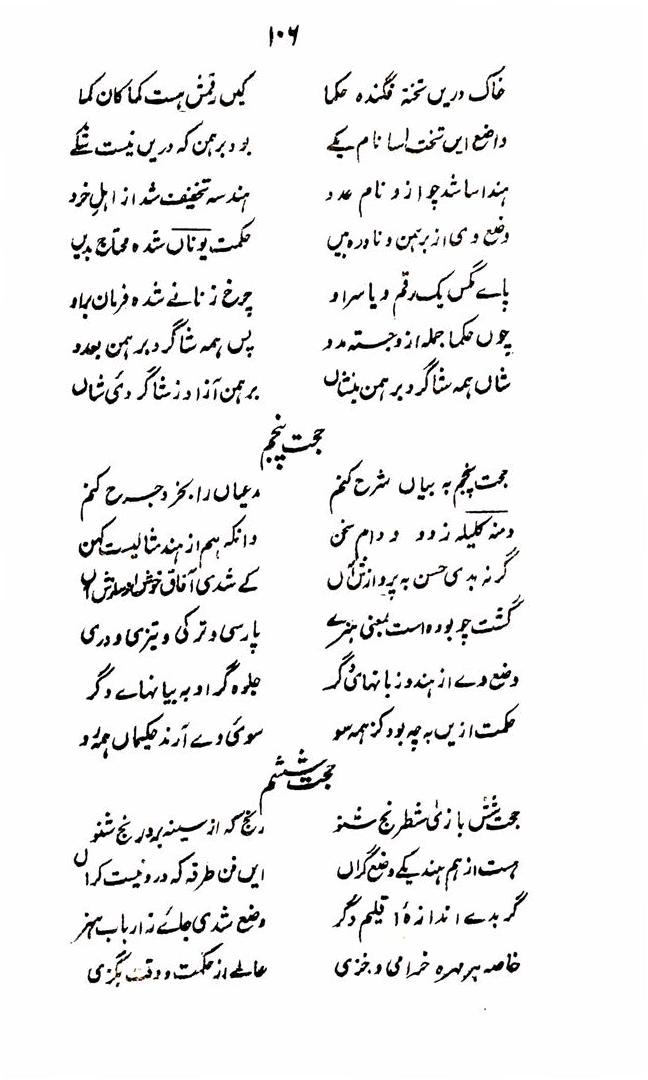 ۱۰۶
خاک دریں تختہ فگندہ حکما کیں رقمش ہست کماکان کما
واضع ایں تخت اسا نام یکے بود برہمن کہ دریں نیست شکے
ہند اسا شد چو ازو نام عدد ہندسہ تخفیف شد از اہل خرد
وضع وی از برہمن و نادرہ بیں حکمت یوناں شدہ محتاج بدیں
پاے مگس یک رقم و یا سر او چرخ زنانے شدہ فرمان بر او
چوں حکما جملہ ازو جستہ مدد پس ہمہ شاگرد برہمن بعدد
شاں ہمہ شاگرد برہمن بنشاں برہمن آزاد ز شاگردئ شاں
حجت پنجم
حجت پنجم بہ بیاں شرح کنم مدعیاں را بخرد جرح کنم
دمنہ کلیلہ ز دو و دام سخن وانکہ ہم از ہند مثالیست کہن
گر نہ بدی حسن بہ پروازش آں کے شدی آفاق خوش
گشت چو بودہ است بمعنی ہنرے پارسی و ترکی و تیزی و دری
وضع وے از ہند و زبانہای دگر جلوہ گر او بہ بیانہاے دگر
حکمت ازیں بہ چہ بود کز ہمہ سو سوئ وے آرند حکیماں ہمہ رو
حجت ششم
حجت شش بازئ شطرنج شنو رنج کہ از سینہ برد رنج شنو
ہست از ہم ہند یکے وضع گراں ایں فن طرفہ کہ درو نیست کراں
گر بدے اندازہ اقلیم دگر وضع شدی جائے ز ارباب ہنر
خاصہ بہر مہرہ خرامی و خزی عالمے از حکمت و دقت بگزی